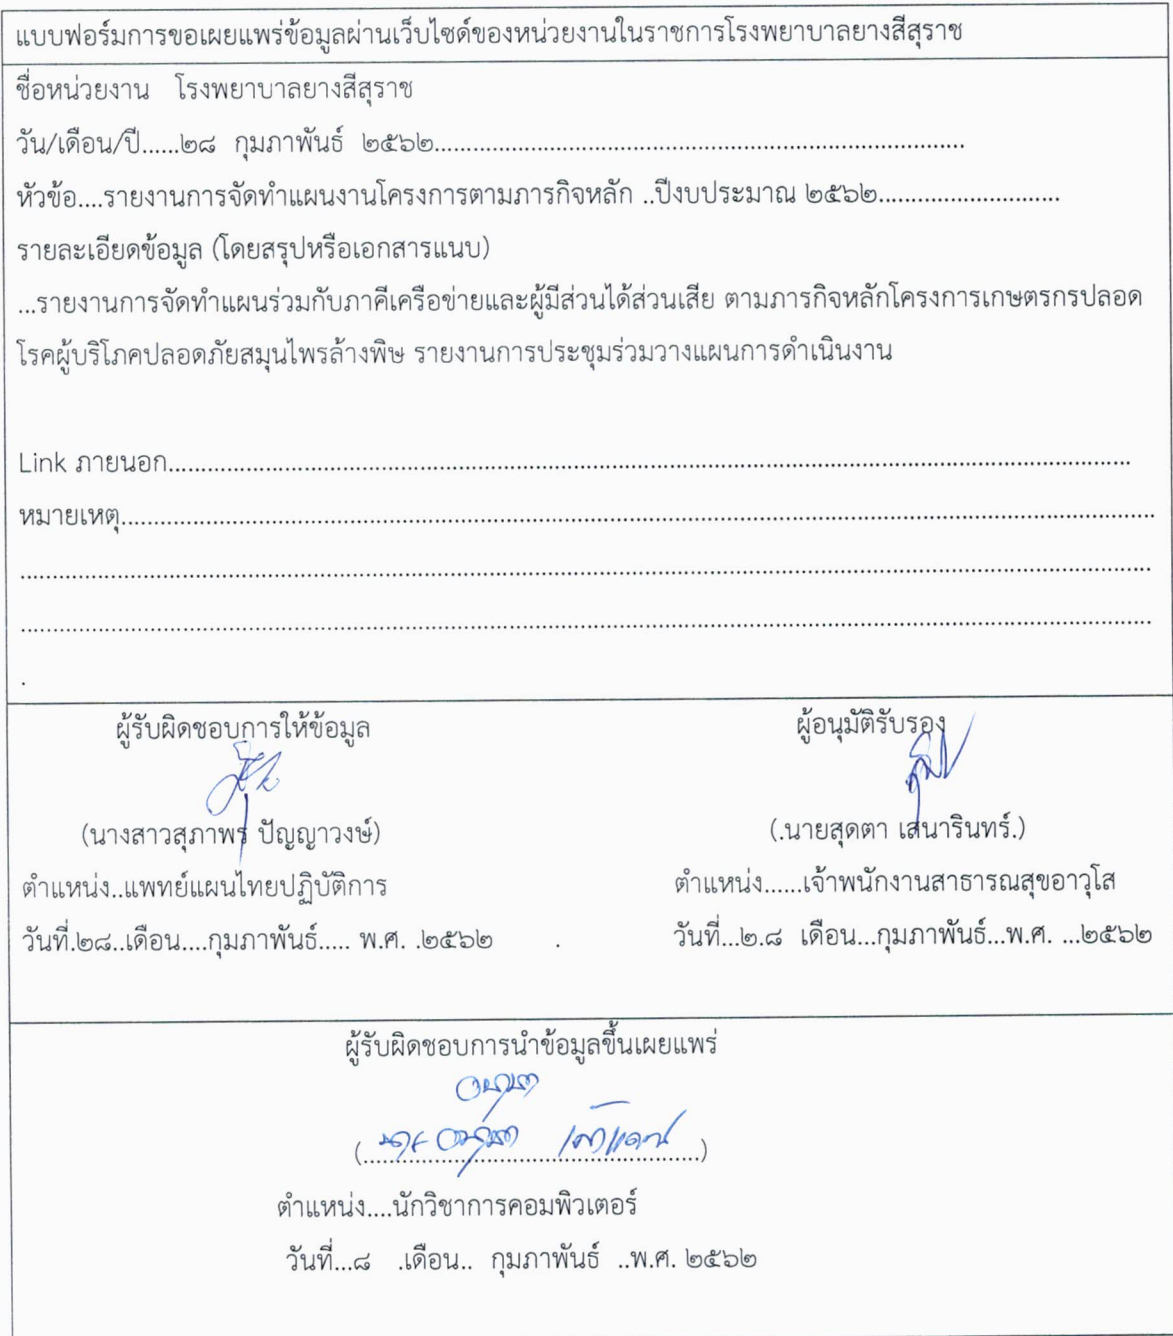 แบบฟอร์มการขอเผยแพร่ข้อมูลผ่านเว็บไซต์ของหน่วยงานในราชการโรงพยาบาลยางสีสุราช
ชื่อหน่วยงาน โรงพยาบาลยางสีสุราช
วัน/เดือน/ปี......๒๘ กุมภาพันธ์ ๒๕๖๒................................................................................
หัวข้อ....รายงานการจัดทำแผนงานโครงการตามภารกิจหลัก ..ปีงบประมาณ ๒๕๖๒............................
รายละเอียดข้อมูล (โดยสรุปหรือเอกสารแนบ)
...รายงานการจัดทำแผนร่วมกับภาคีเครือข่ายและผู้มีส่วนได้ส่วนเสีย ตามภารกิจหลักโครงการเกษตรกรปลอด
โรคผู้บริโภคปลอดภัยสมุนไพรล้างพิษ รายงานการประชุมร่วมวางแผนการดำเนินงาน
Link ภายนอก....................................................................................................
หมายเหตุ....................................................................................................
....................................................................................................
....................................................................................................
.
ผู้รับผิดชอบการให้ข้อมูล ผู้อนุมัติรับรอง
(นางสาวสุภาพร ปัญญาวงษ์) (.นายสุดตา เสนารินทร์.)
ตำแหน่ง..แพทย์แผนไทยปฏิบัติการ ตำแหน่ง......เจ้าพนักงานสาธารณสุขอาวุโส
วันที่.๒๘..เดือน....กุมภาพันธ์..... พ.ศ. .๒๕๖๒ . วันที่...๒.๘ เดือน...กุมภาพันธ์...พ.ศ. ...๒๕๖๒
ผู้รับผิดชอบการนำข้อมูลขึ้นเผยแพร่
ตำแหน่ง....นักวิชาการคอมพิวเตอร์
วันที่...๘ .เดือน.. กุมภาพันธ์ ..พ.ศ. ๒๕๖๒